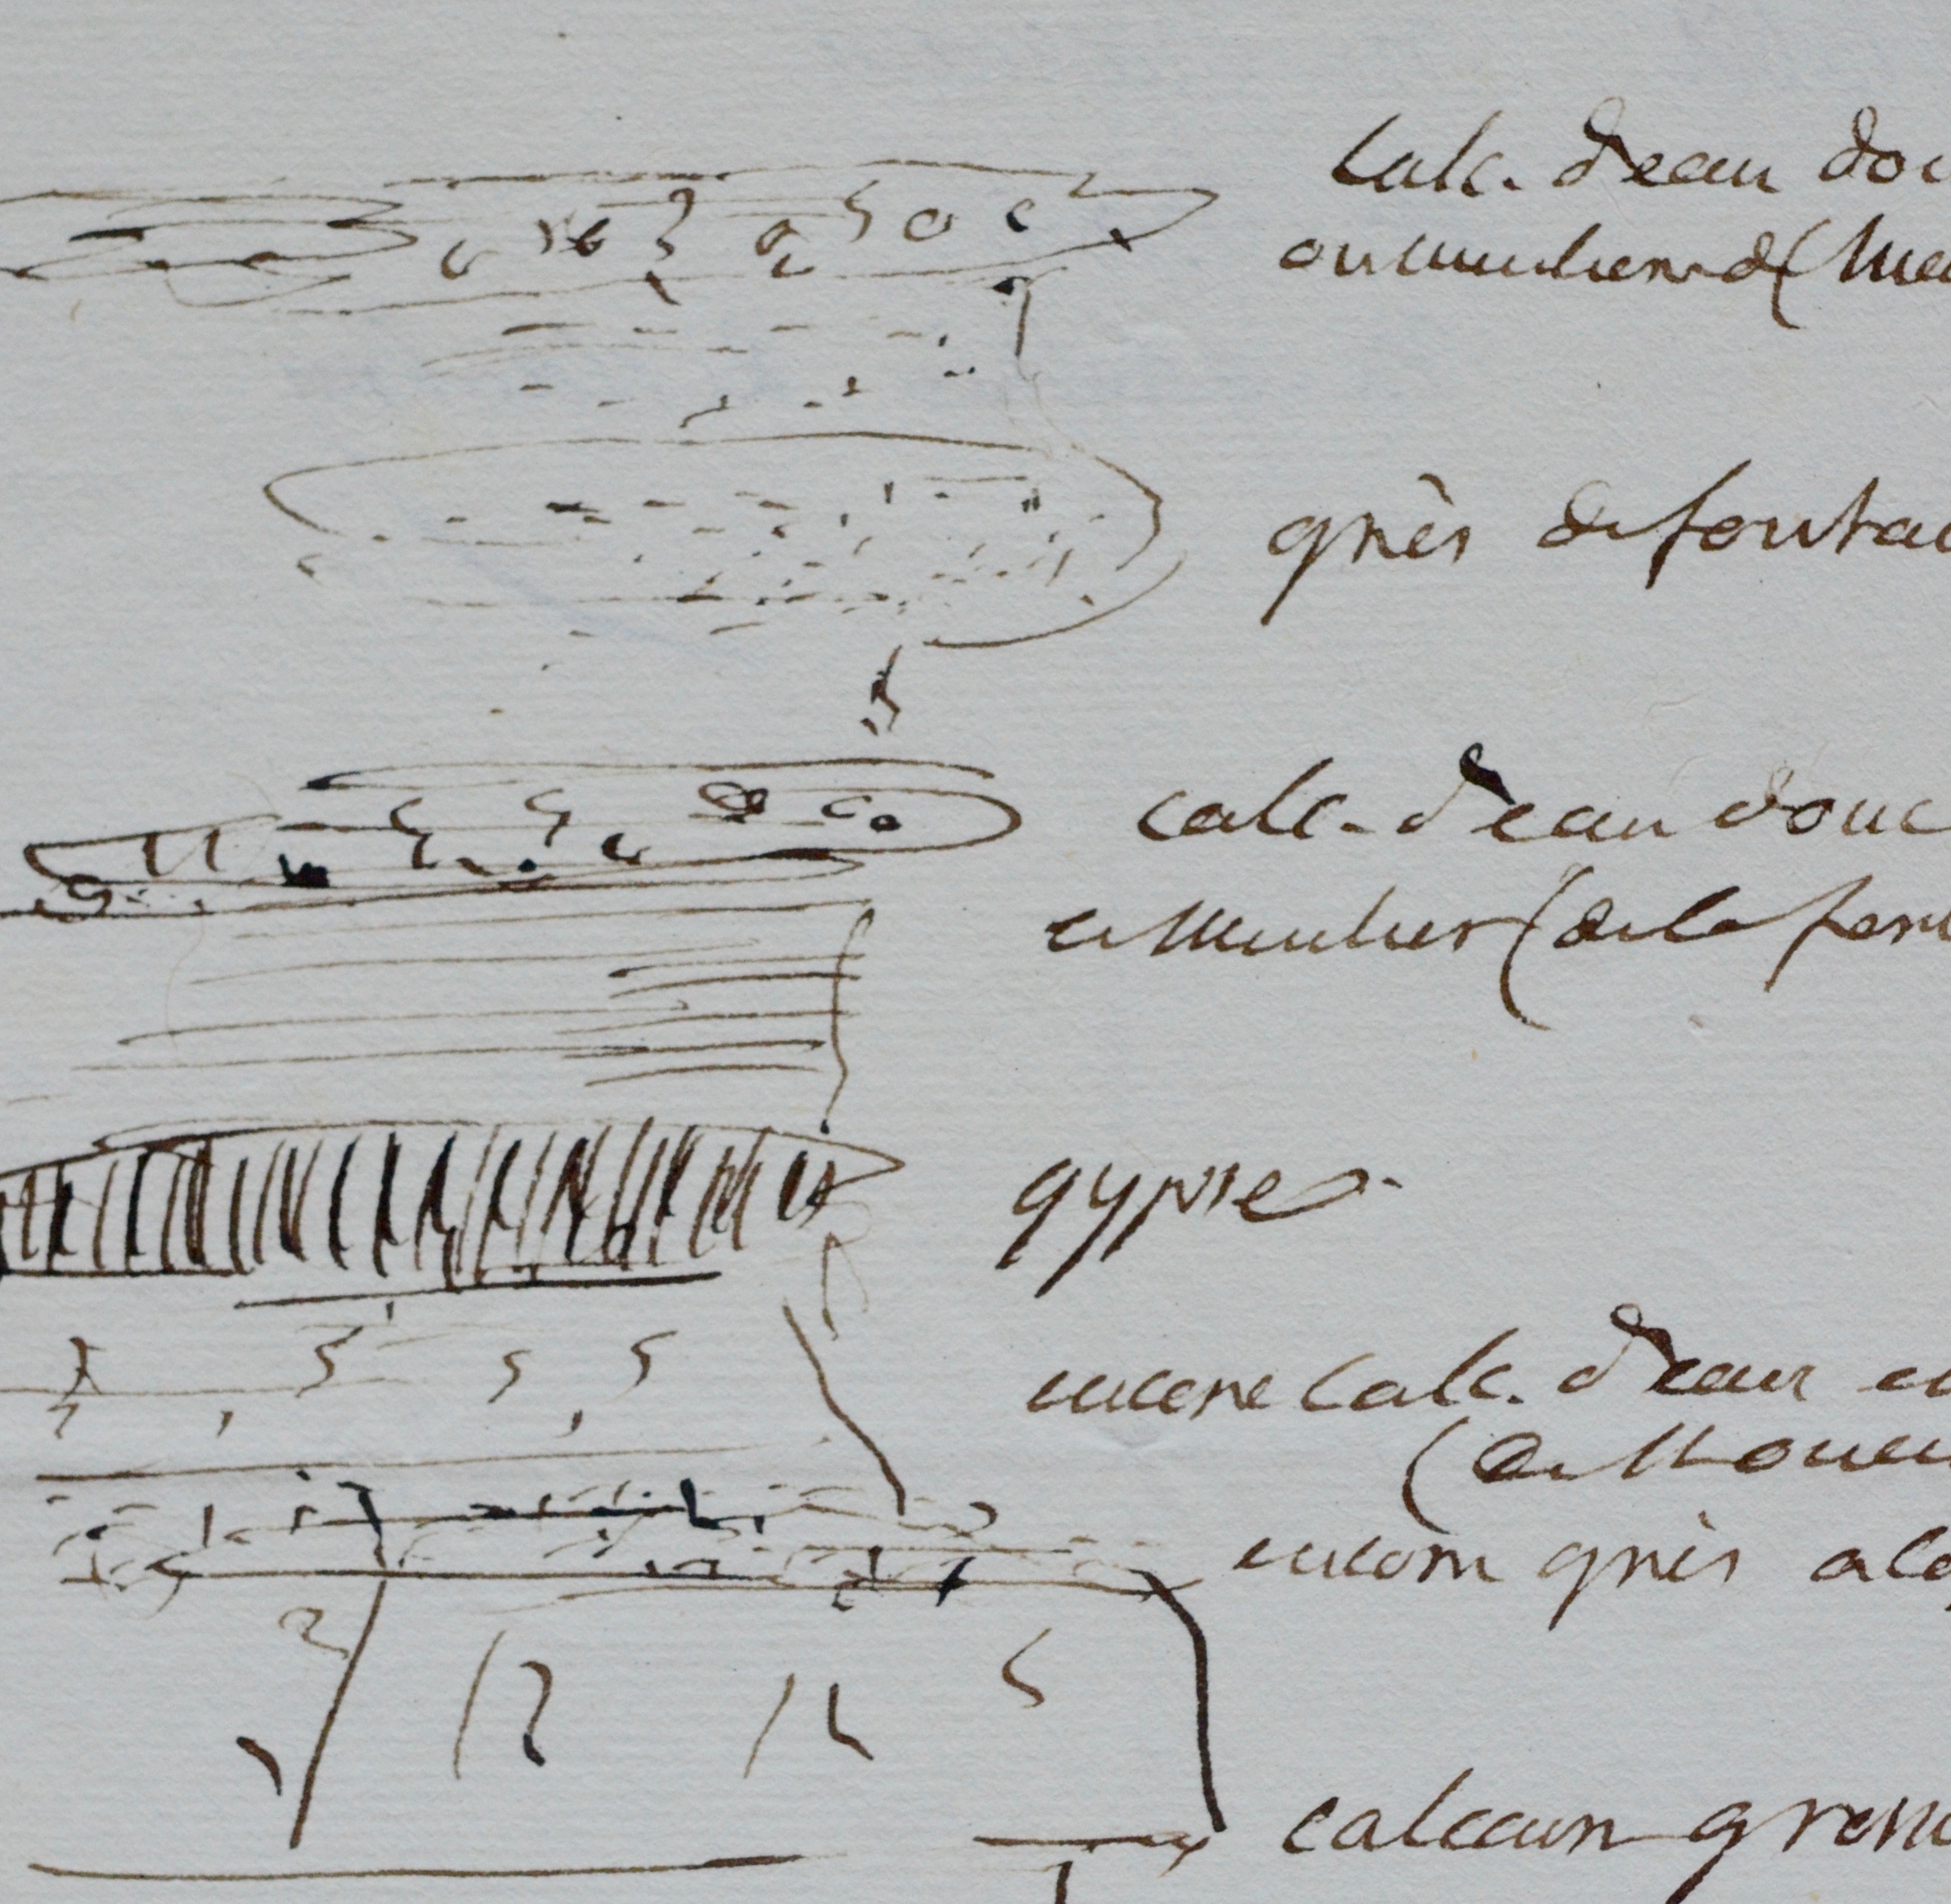 Calc. d'eau dou
ou meulière d (Me
grès de fontai
calc. d'eau douc
et meulier (de la fer
gypse.
encore calc. d'eau
(de
encore grès
calcaire gross